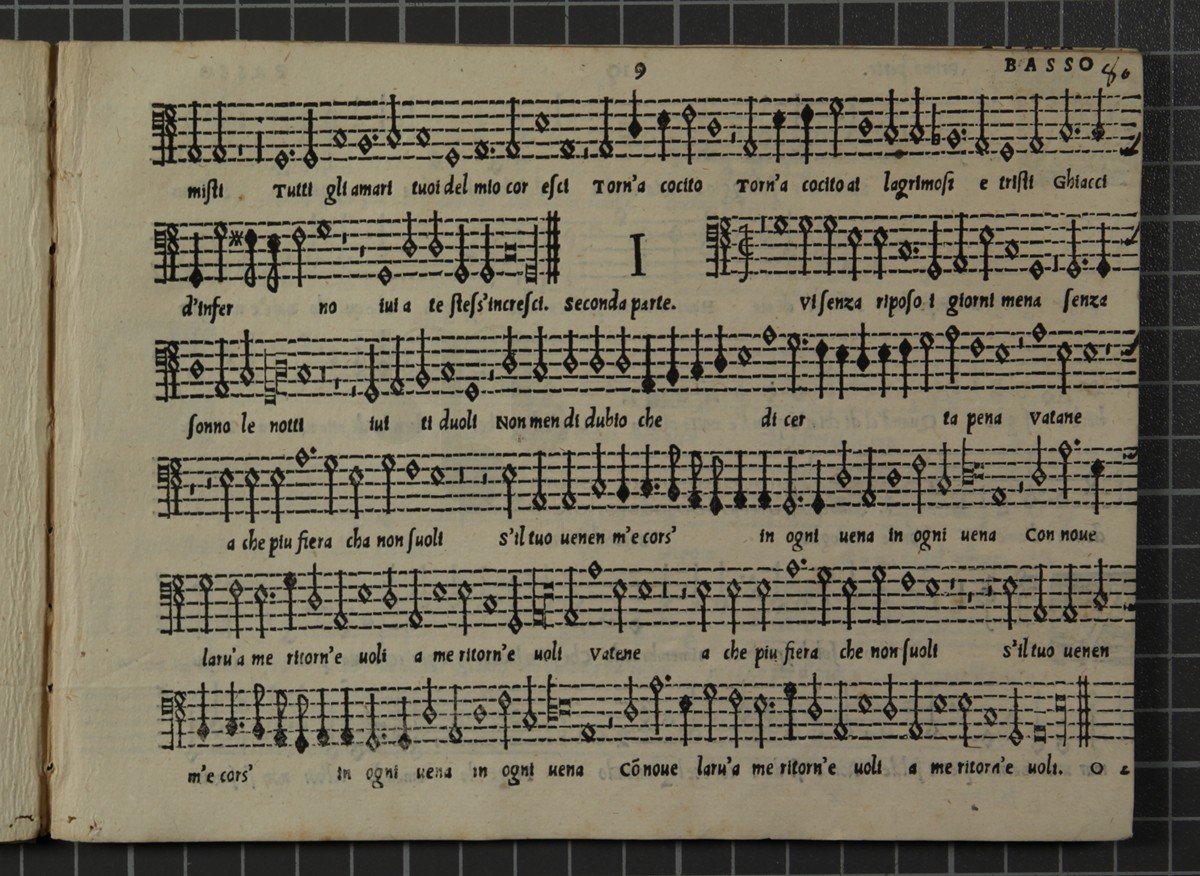 9
BASSO 80
misti Tutti gli amari tuoi del mio cor esci Torn'a cocito Torn'a cocito ai lagrimosi e tristi Ghiacci
d'infer no iui a te stess'incresci. Seconda parte. I vi senza riposo i giorni mena senza
sonno le notti iui ti duoli Non men di dubio che di cer ta pena Vatane
a che piu fiera cha non suoli S'il tuo uenen m'e cors' in ogni uena in ogni uena Con noue
laru'a me ritorn'e uoli a me ritorn'e uoli Vatene a che piu fiera che non suoli S'il tuo uenen
m'e cors' in ogni uena in ogni uena Cõ noue laru'a me ritorn'e uoli a me ritorn'e uoli. O